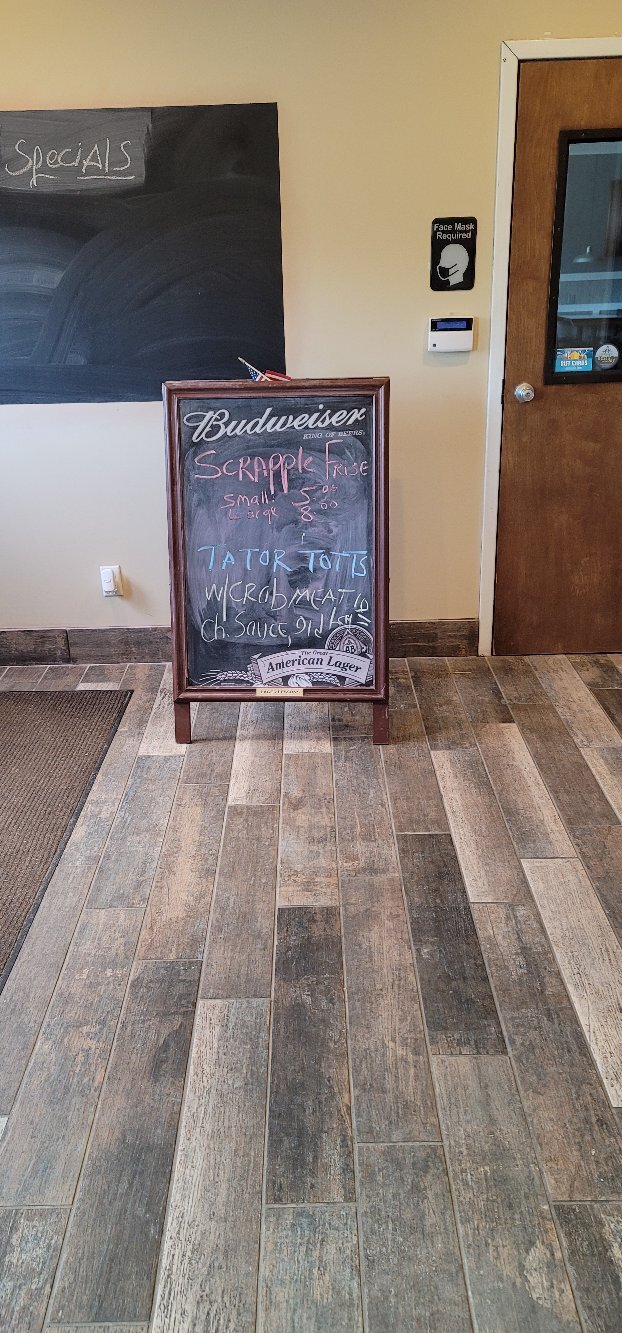 SpeciALS
Face Mask
Required
Budweiser
KING OF BEERS
SCRAPPle FRISE
small: 5.00
Large 8.00
TATOR TOTTS
W/CRAbMEAT
Ch. SAUCE,
The Great
American Lager
GIFT CARDS